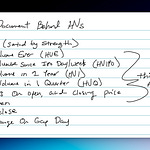 Document Behind AVs
(Sorted by Strength)
Volume Ever (HVE)
Volume Since Ion Day/Week (HVIPO)
Volume in 1 Year (HV1)
Volume in 1 Quarter (HVQ)
% On open and closing price
close
Range On Gap Day